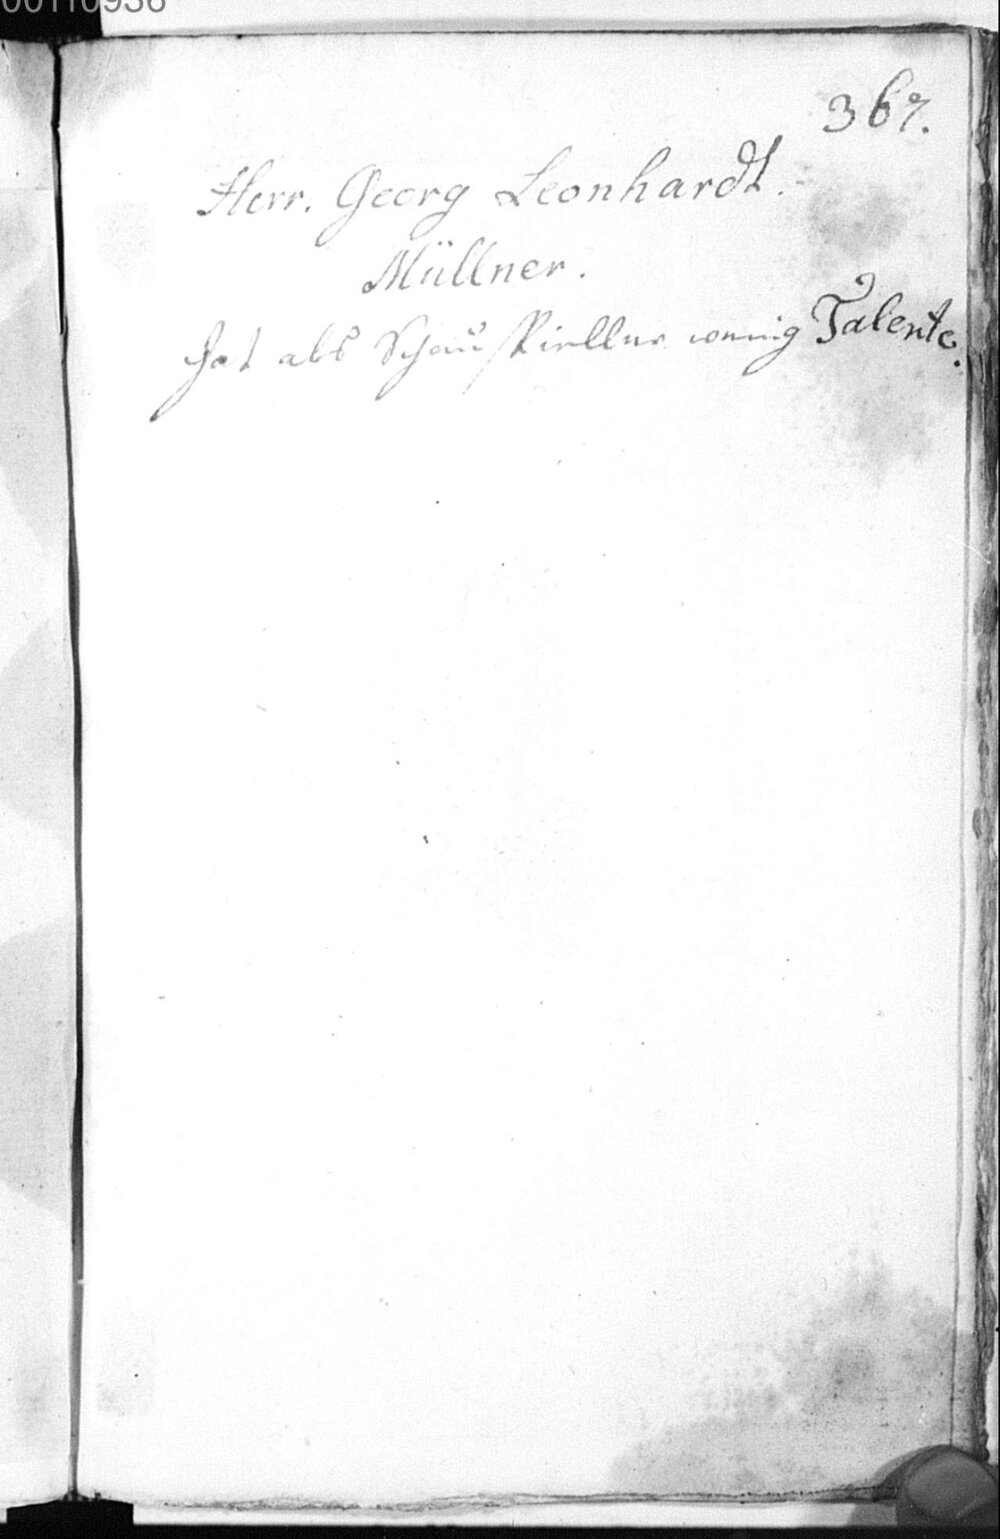 00110936
367.
Herr. Georg Leonhardt.
Müllner.
hat als Schauspieller wenig Talente.